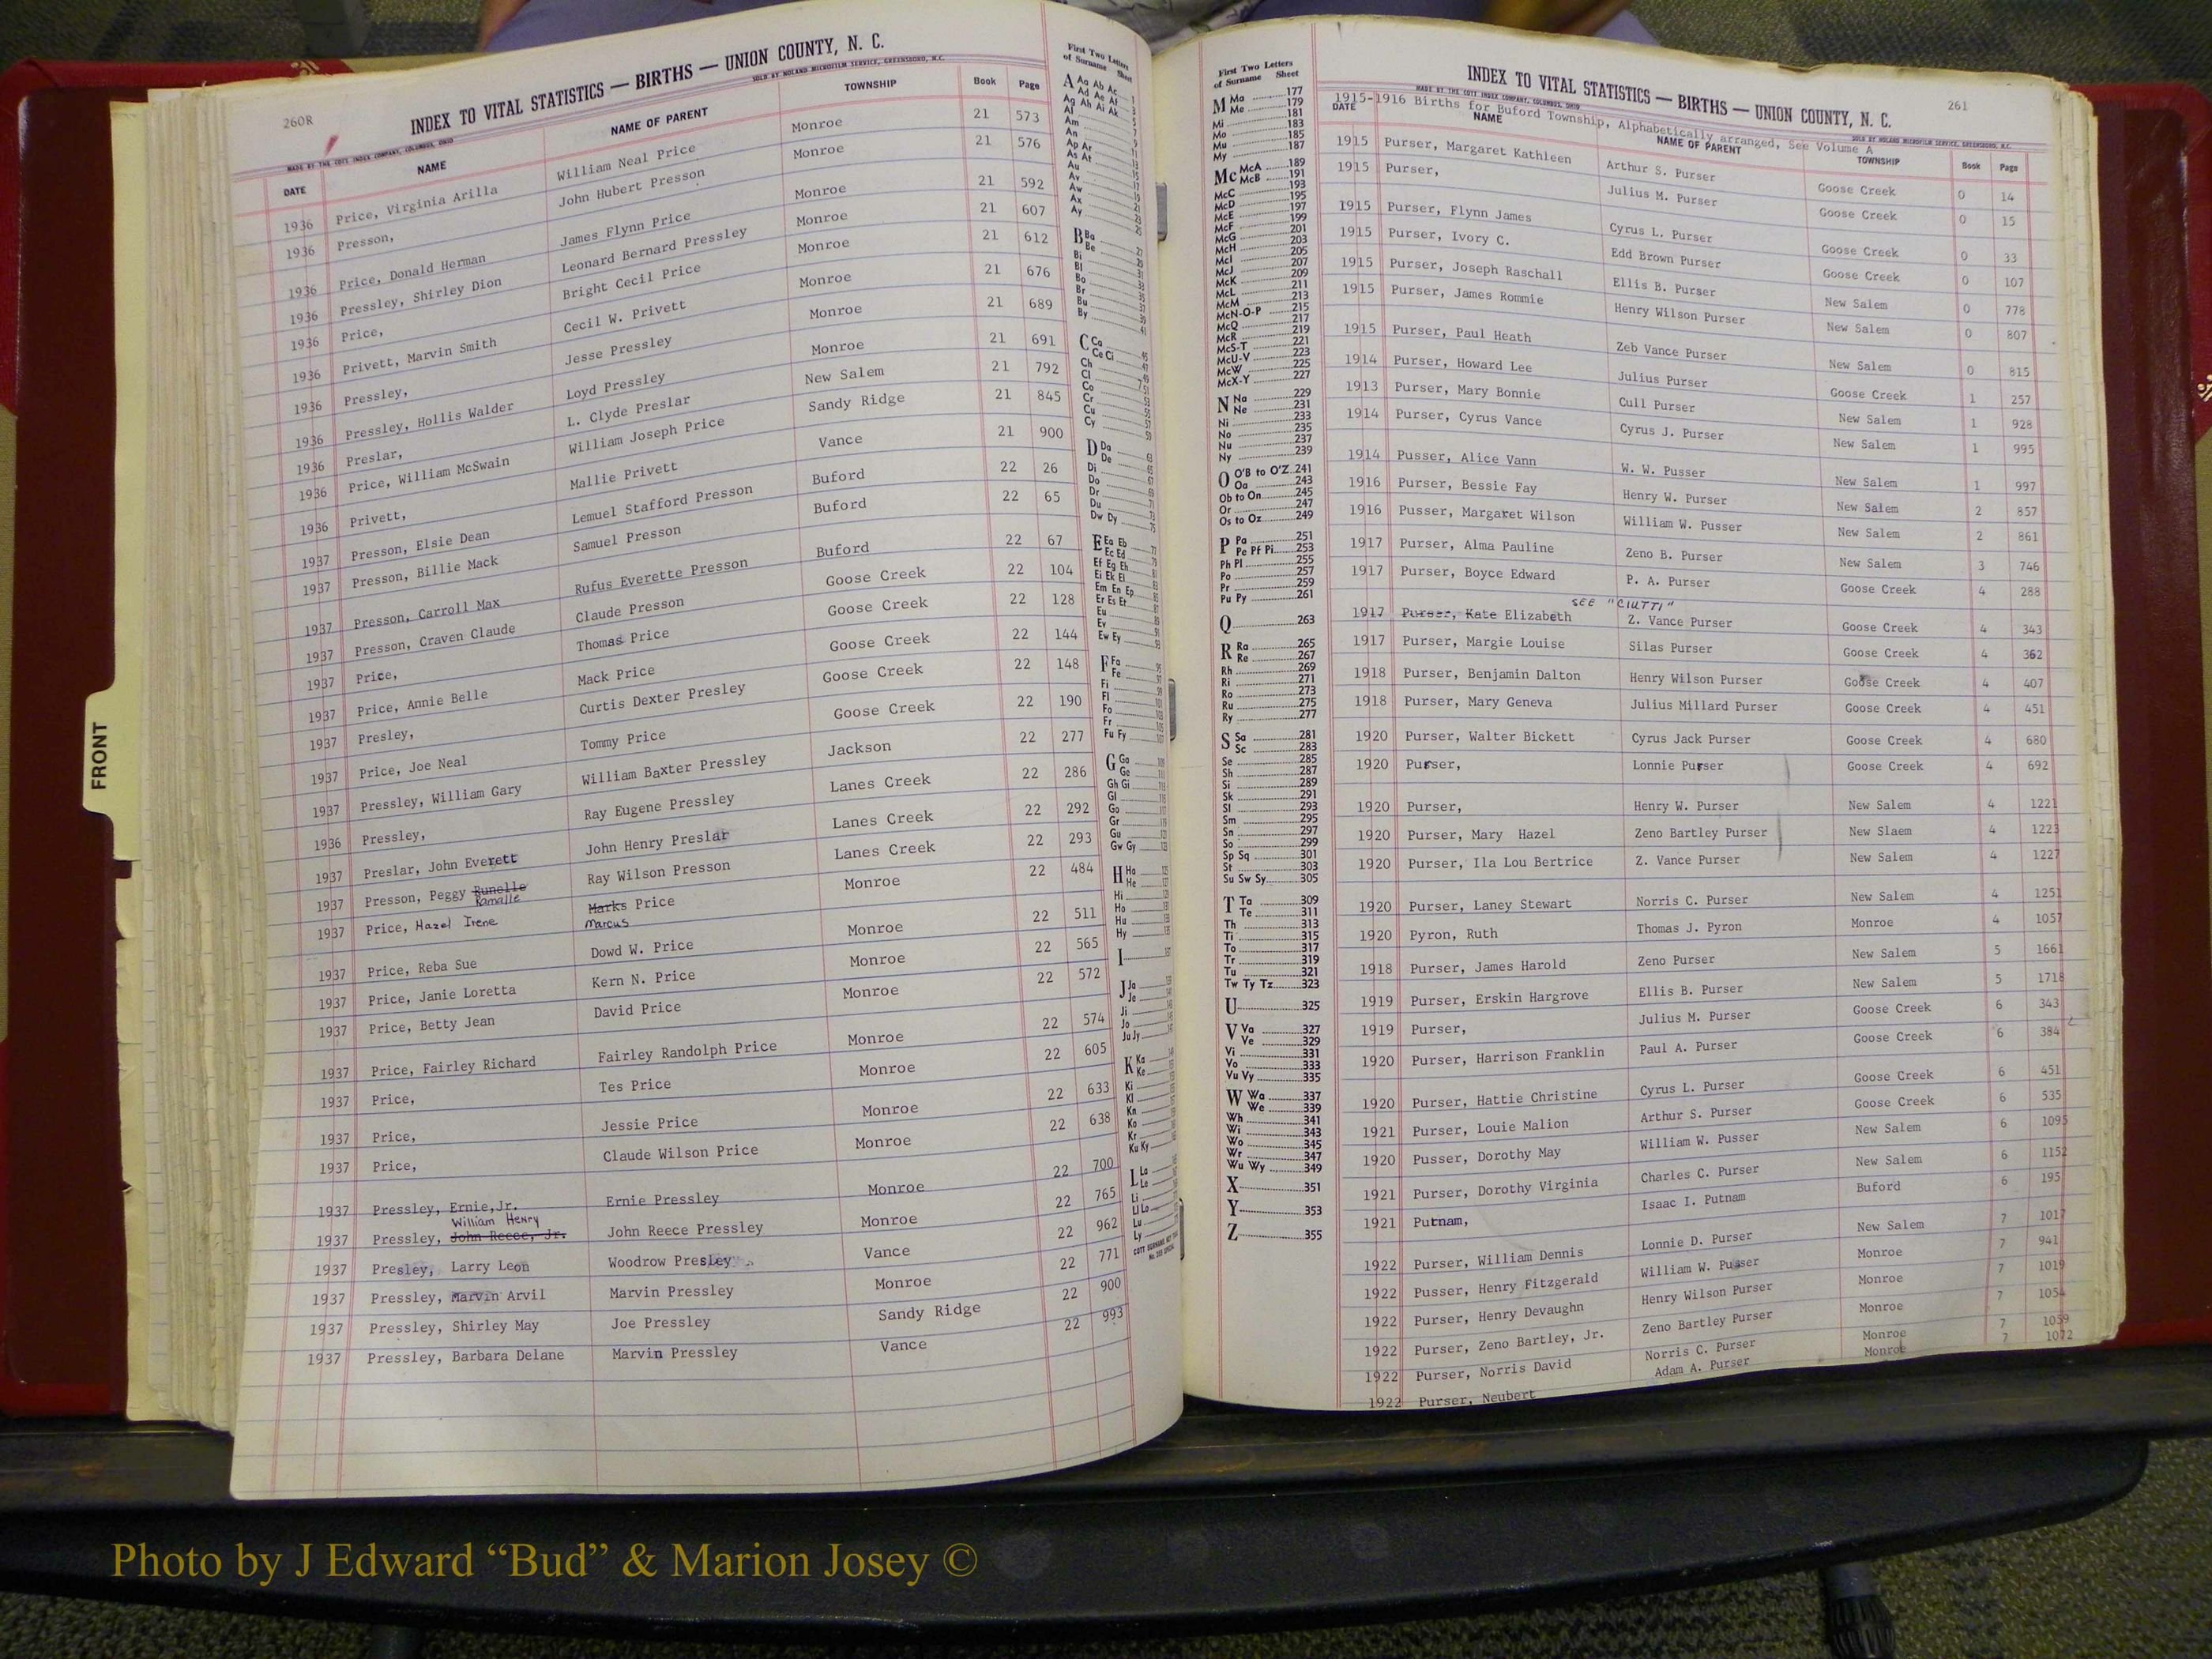 260R
INDEX TO VITAL STATISTICS — BIRTHS — UNION COUNTY, N. C.
MADE BY THE COTT INDEX COMPANY, COLUMBUS, OHIO SOLD BY NOLAND MICROFILM SERVICE, GREENSBORO, N.C.
DATE NAME NAME OF PARENT TOWNSHIP Book Page
1936 Price, Virginia Arilla William Neal Price Monroe 21 573
1936 Presson, John Hubert Presson Monroe 21 576
1936 Price, Donald Herman James Flynn Price Monroe 21 592
1936 Pressley, Shirley Dion Leonard Bernard Pressley Monroe 21 607
1936 Price, Bright Cecil Price Monroe 21 612
1936 Privett, Marvin Smith Cecil W. Privett Monroe 21 676
1936 Pressley, Jesse Pressley Monroe 21 689
1936 Pressley, Hollis Walder Loyd Pressley Monroe 21 691
1936 Preslar, L. Clyde Preslar New Salem 21 792
1936 Price, William McSwain William Joseph Price Sandy Ridge 21 845
1936 Privett, Mallie Privett Vance 21 900
1937 Presson, Elsie Dean Lemuel Stafford Presson Buford 22 26
1937 Presson, Billie Mack Samuel Presson Buford 22 65
1937 Presson, Carroll Max Rufus Everette Presson Buford 22 67
1937 Presson, Craven Claude Claude Presson Goose Creek 22 104
1937 Price, Thomas Price Goose Creek 22 128
1937 Price, Annie Belle Mack Price Goose Creek 22 144
1937 Presley, Curtis Dexter Presley Goose Creek 22 148
1937 Price, Joe Neal Tommy Price Goose Creek 22 190
1937 Pressley, William Gary William Baxter Pressley Jackson 22 277
1936 Pressley, Ray Eugene Pressley Lanes Creek 22 286
1937 Preslar, John Everett John Henry Preslar Lanes Creek 22 292
1937 Presson, Peggy Runelle Ray Wilson Presson Lanes Creek 22 293
Ramalle
1937 Price, Hazel Irene Marks Price Monroe 22 484
Marcus
1937 Price, Reba Sue Dowd W. Price Monroe 22 511
1937 Price, Janie Loretta Kern N. Price Monroe 22 565
1937 Price, Betty Jean David Price Monroe 22 572
1937 Price, Fairley Richard Fairley Randolph Price Monroe 22 574
1937 Price, Tes Price Monroe 22 605
1937 Price, Jessie Price Monroe 22 633
1937 Price, Claude Wilson Price Monroe 22 638
1937 Pressley, Ernie,Jr. Ernie Pressley Monroe 22 700
William Henry
1937 Pressley, John Reece, Jr. John Reece Pressley Monroe 22 765
1937 Presley, Larry Leon Woodrow Presley Vance 22 962
1937 Pressley, Marvin Arvil Marvin Pressley Monroe 22 771
1937 Pressley, Shirley May Joe Pressley Sandy Ridge 22 900
1937 Pressley, Barbara Delane Marvin Pressley Vance 22 993
First Two Letters
of Surname Sheet
A Aa Ab Ac
Ad Ae Af
Ag Ah Ai Ak
Al
Am
An
Ap Ar
As At
Au
Av
Aw
Ax
Ay
B Ba
Be
Bi
Bl
Bo
Br
Bu
By
C Ca
Ce Ci
Ch
Cl
Co
Cr
Cu
Cy
D Da
De
Di
Do
Dr
Du
Dw Dy
E Ea Eb
Ec Ed
Ef Eg Eh
Ei Ek El
Em En Ep
Er Es Et
Eu
Ev
Ew Ey
F Fa
Fe
Fi
Fl
Fo
Fr
Fu Fy
G Ga
Ge
Gh Gi
Gl
Go
Gr
Gu
Gw Gy
H Ha
He
Hi
Ho
Hu
Hy
I
J Ja
Je
Ji
Jo
Ju Jy
K Ka
Ke
Ki
Kl
Kn
Ko
Kr
Ku Ky
L La
Le
Li
Ll Lo
Lu
Ly
FRONT
First Two Letters
of Surname Sheet
M Ma 177
Me 179
181
Mi 183
Mo 185
Mu 187
My
Mc McA 189
McB 191
McC 193
McD 195
McE 197
McF 199
McG 201
McH 203
McI 205
McJ 207
McK 209
McL 211
McM 213
McN-O-P 215
McQ 217
McR 219
McS-T 221
McU-V 223
McW 225
McX-Y 227
N Na 229
Ne 231
Ni 233
No 235
Nu 237
Ny 239
O O'B to O'Z 241
Oa 243
Ob to On 245
Or 247
Os to Oz 249
P Pa 251
Pe Pf Pi 253
Ph Pl 255
Po 257
Pr 259
Pu Py 261
Q 263
R Ra 265
Re 267
Rh 269
Ri 271
Ro 273
Ru 275
Ry 277
S Sa 281
Sc 283
Se 285
Sh 287
Si 289
Sk 291
Sl 293
Sm 295
Sn 297
So 299
Sp Sq 301
St 303
Su Sw Sy 305
T Ta 309
Te 311
Th 313
Ti 315
To 317
Tr 319
Tu 321
Tw Ty Tz 323
U 325
V Va 327
Ve 329
Vi 331
Vo 333
Vu Vy 335
W Wa 337
We 339
Wh 341
Wi 343
Wo 345
Wr 347
Wu Wy 349
X 351
Y 353
Z 355
261
INDEX TO VITAL STATISTICS — BIRTHS — UNION COUNTY, N. C.
MADE BY THE COTT INDEX COMPANY, COLUMBUS, OHIO SOLD BY NOLAND MICROFILM SERVICE, GREENSBORO, N.C.
1915-1916 Births for Buford Township, Alphabetically arranged, See Volume A
DATE NAME NAME OF PARENT TOWNSHIP Book Page
1915 Purser, Margaret Kathleen Arthur S. Purser Goose Creek 0 14
1915 Purser, Julius M. Purser Goose Creek 0 15
1915 Purser, Flynn James Cyrus L. Purser Goose Creek 0 33
1915 Purser, Ivory C. Edd Brown Purser Goose Creek 0 107
1915 Purser, Joseph Raschall Ellis B. Purser New Salem 0 778
1915 Purser, James Rommie Henry Wilson Purser New Salem 0 807
1915 Purser, Paul Heath Zeb Vance Purser New Salem 0 815
1914 Purser, Howard Lee Julius Purser Goose Creek 1 257
1913 Purser, Mary Bonnie Cull Purser New Salem 1 928
1914 Purser, Cyrus Vance Cyrus J. Purser New Salem 1 995
1914 Pusser, Alice Vann W. W. Pusser New Salem 1 997
1916 Purser, Bessie Fay Henry W. Purser New Salem 2 857
1916 Pusser, Margaret Wilson William W. Pusser New Salem 2 861
1917 Purser, Alma Pauline Zeno B. Purser New Salem 3 746
1917 Purser, Boyce Edward P. A. Purser Goose Creek 4 288
SEE "CIUTTI"
1917 Purser, Kate Elizabeth Z. Vance Purser Goose Creek 4 343
1917 Purser, Margie Louise Silas Purser Goose Creek 4 362
1918 Purser, Benjamin Dalton Henry Wilson Purser Goose Creek 4 407
1918 Purser, Mary Geneva Julius Millard Purser Goose Creek 4 451
1920 Purser, Walter Bickett Cyrus Jack Purser Goose Creek 4 680
1920 Purser, Lonnie Purser Goose Creek 4 692
1920 Purser, Henry W. Purser New Salem 4 1221
1920 Purser, Mary Hazel Zeno Bartley Purser New Slaem 4 1223
1920 Purser, Ila Lou Bertrice Z. Vance Purser New Salem 4 1227
1920 Purser, Laney Stewart Norris C. Purser New Salem 4 1251
1920 Pyron, Ruth Thomas J. Pyron Monroe 4 1057
1918 Purser, James Harold Zeno Purser New Salem 5 1661
1919 Purser, Erskin Hargrove Ellis B. Purser New Salem 5 1718
1919 Purser, Julius M. Purser Goose Creek 6 343
1920 Purser, Harrison Franklin Paul A. Purser Goose Creek 6 384
1920 Purser, Hattie Christine Cyrus L. Purser Goose Creek 6 451
1921 Purser, Louie Malion Arthur S. Purser Goose Creek 6 535
1920 Pusser, Dorothy May William W. Pusser New Salem 6 1095
1921 Purser, Dorothy Virginia Charles C. Purser New Salem 6 1152
1921 Putnam, Isaac I. Putnam Buford 6 195
1922 Purser, William Dennis Lonnie D. Purser New Salem 7 1017
1922 Pusser, Henry Fitzgerald William W. Pusser Monroe 7 941
1922 Purser, Henry Devaughn Henry Wilson Purser Monroe 7 1019
1922 Purser, Zeno Bartley, Jr. Zeno Bartley Purser Monroe 7 1054
1922 Purser, Norris David Norris C. Purser Monroe 7 1059
1922 Purser, Neubert Adam A. Purser Monroe 7 1072
Photo by J Edward “Bud” & Marion Josey ©